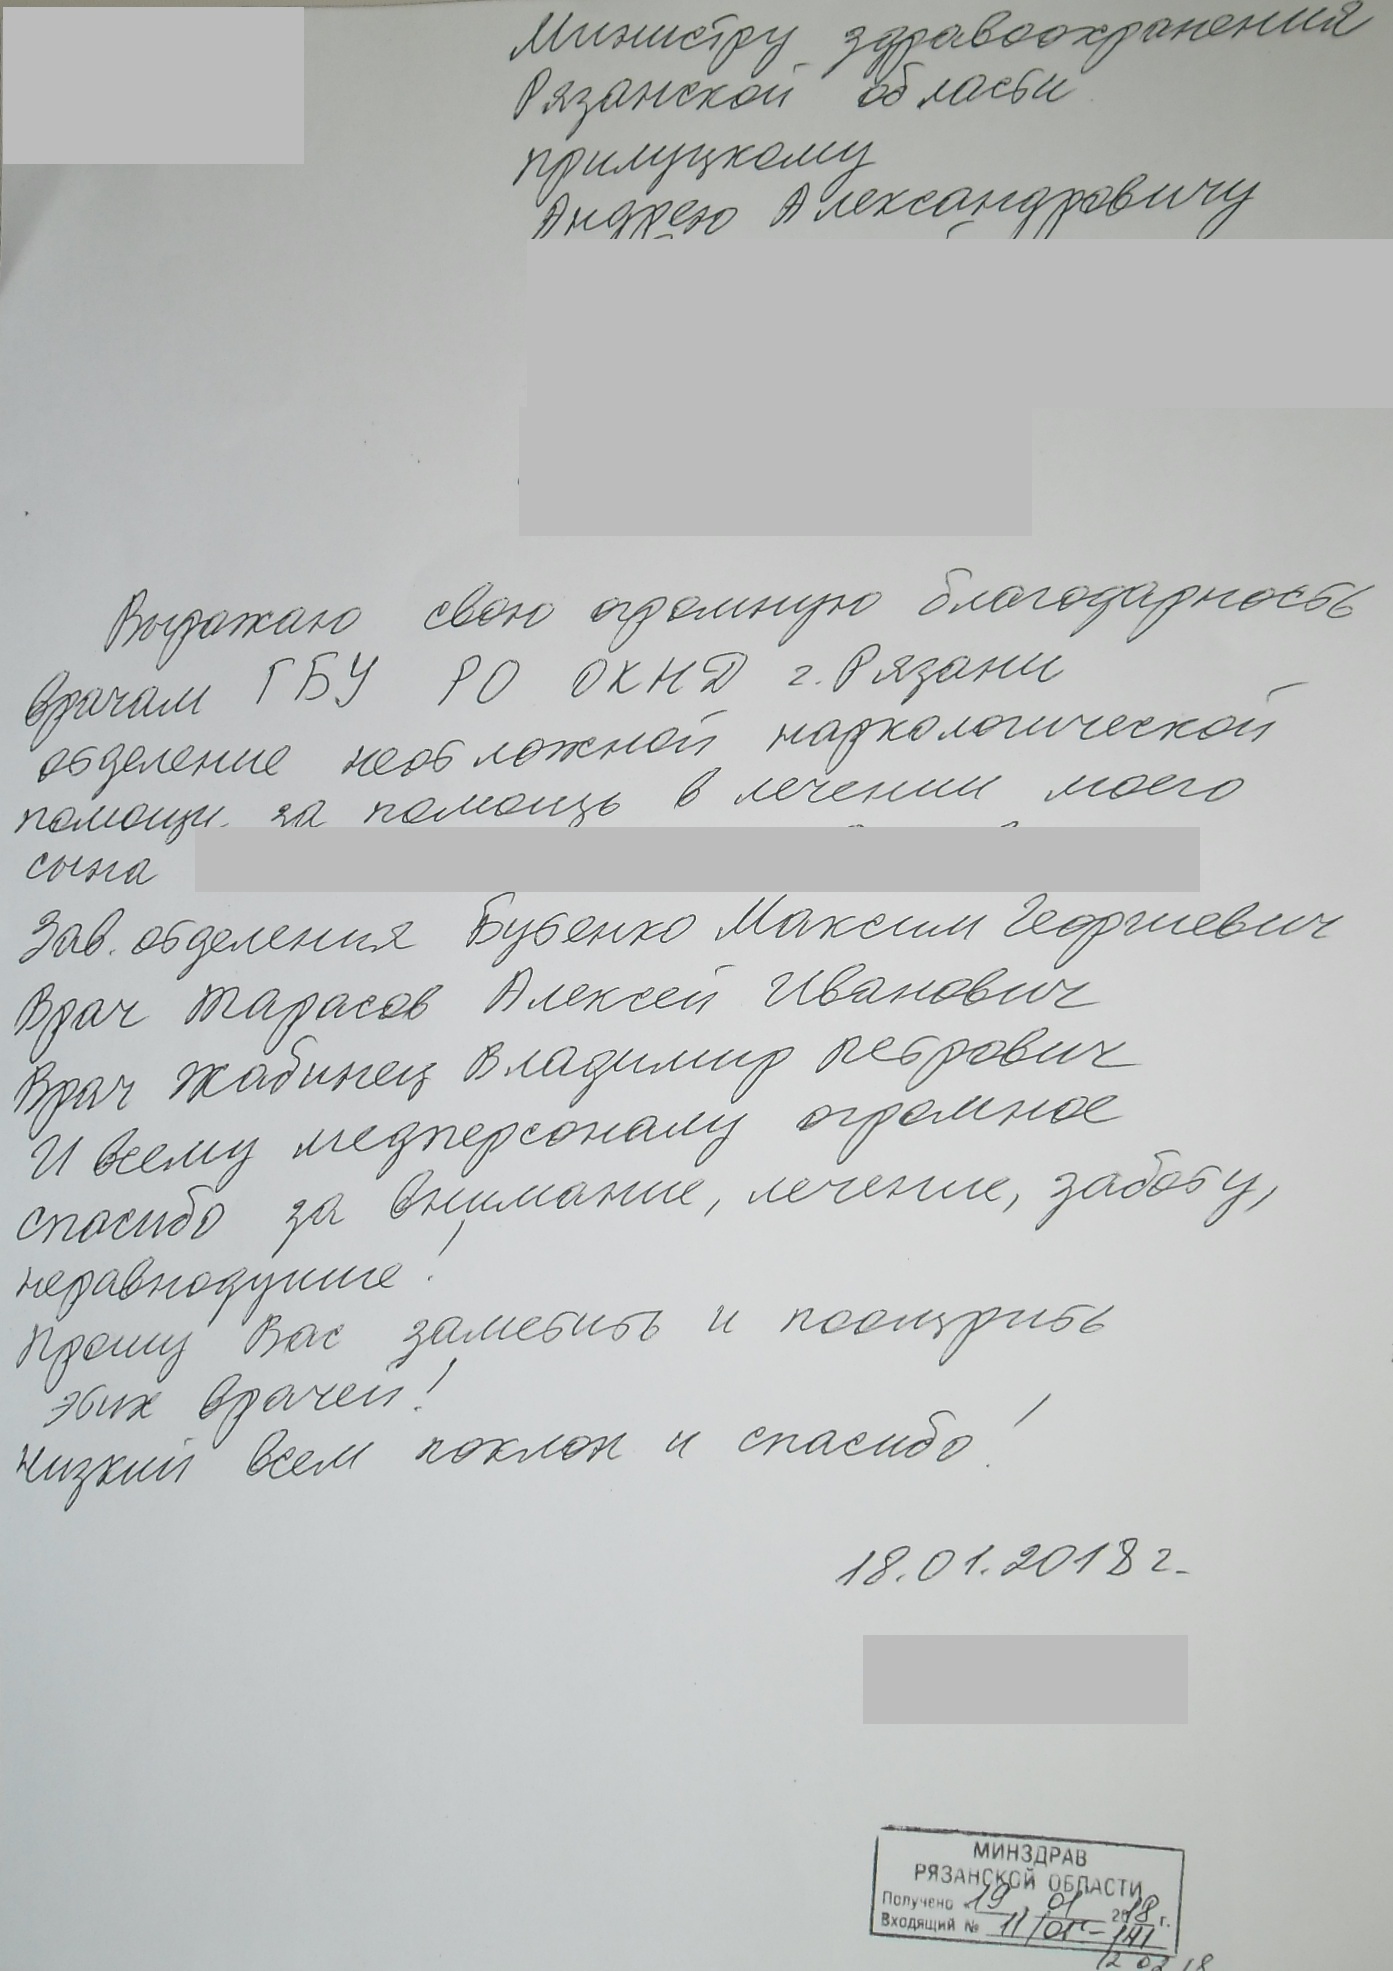 Министру здравоохранения
Рязанской области
Прилуцкому
Андрею Александровичу
Выражаю свою огромную благодарность
врачам ГБУ РО ОКНД г. Рязани
отделение неотложной наркологической
помощи за помощь в лечении моего
сына
Зав. отделения Бутенко Максим Георгиевич
Врач Тарасов Алексей Иванович
Врач Жабинец Владимир Петрович
И всему медперсоналу огромное
спасибо за внимание, лечение, заботу,
неравнодушие!
Прошу Вас заметить и поощрить
этих врачей!
Низкий всем поклон и спасибо!
18.01.2018 г.
МИНЗДРАВ
РЯЗАНСКОЙ ОБЛАСТИ
Получено «19 01 2018 г.
Входящий №